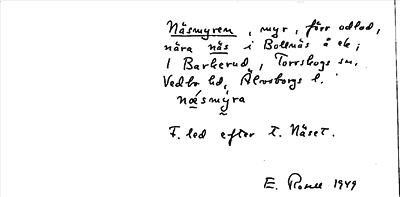 Näsmyren, myr, förr odlad,
nära näs i Bollnäs å ek;
i Barkerud, Torrskogs sn.
Vedbo hd, Älvsborgs l.
näsmýra
F. led efter t. Näset.
E. 1949